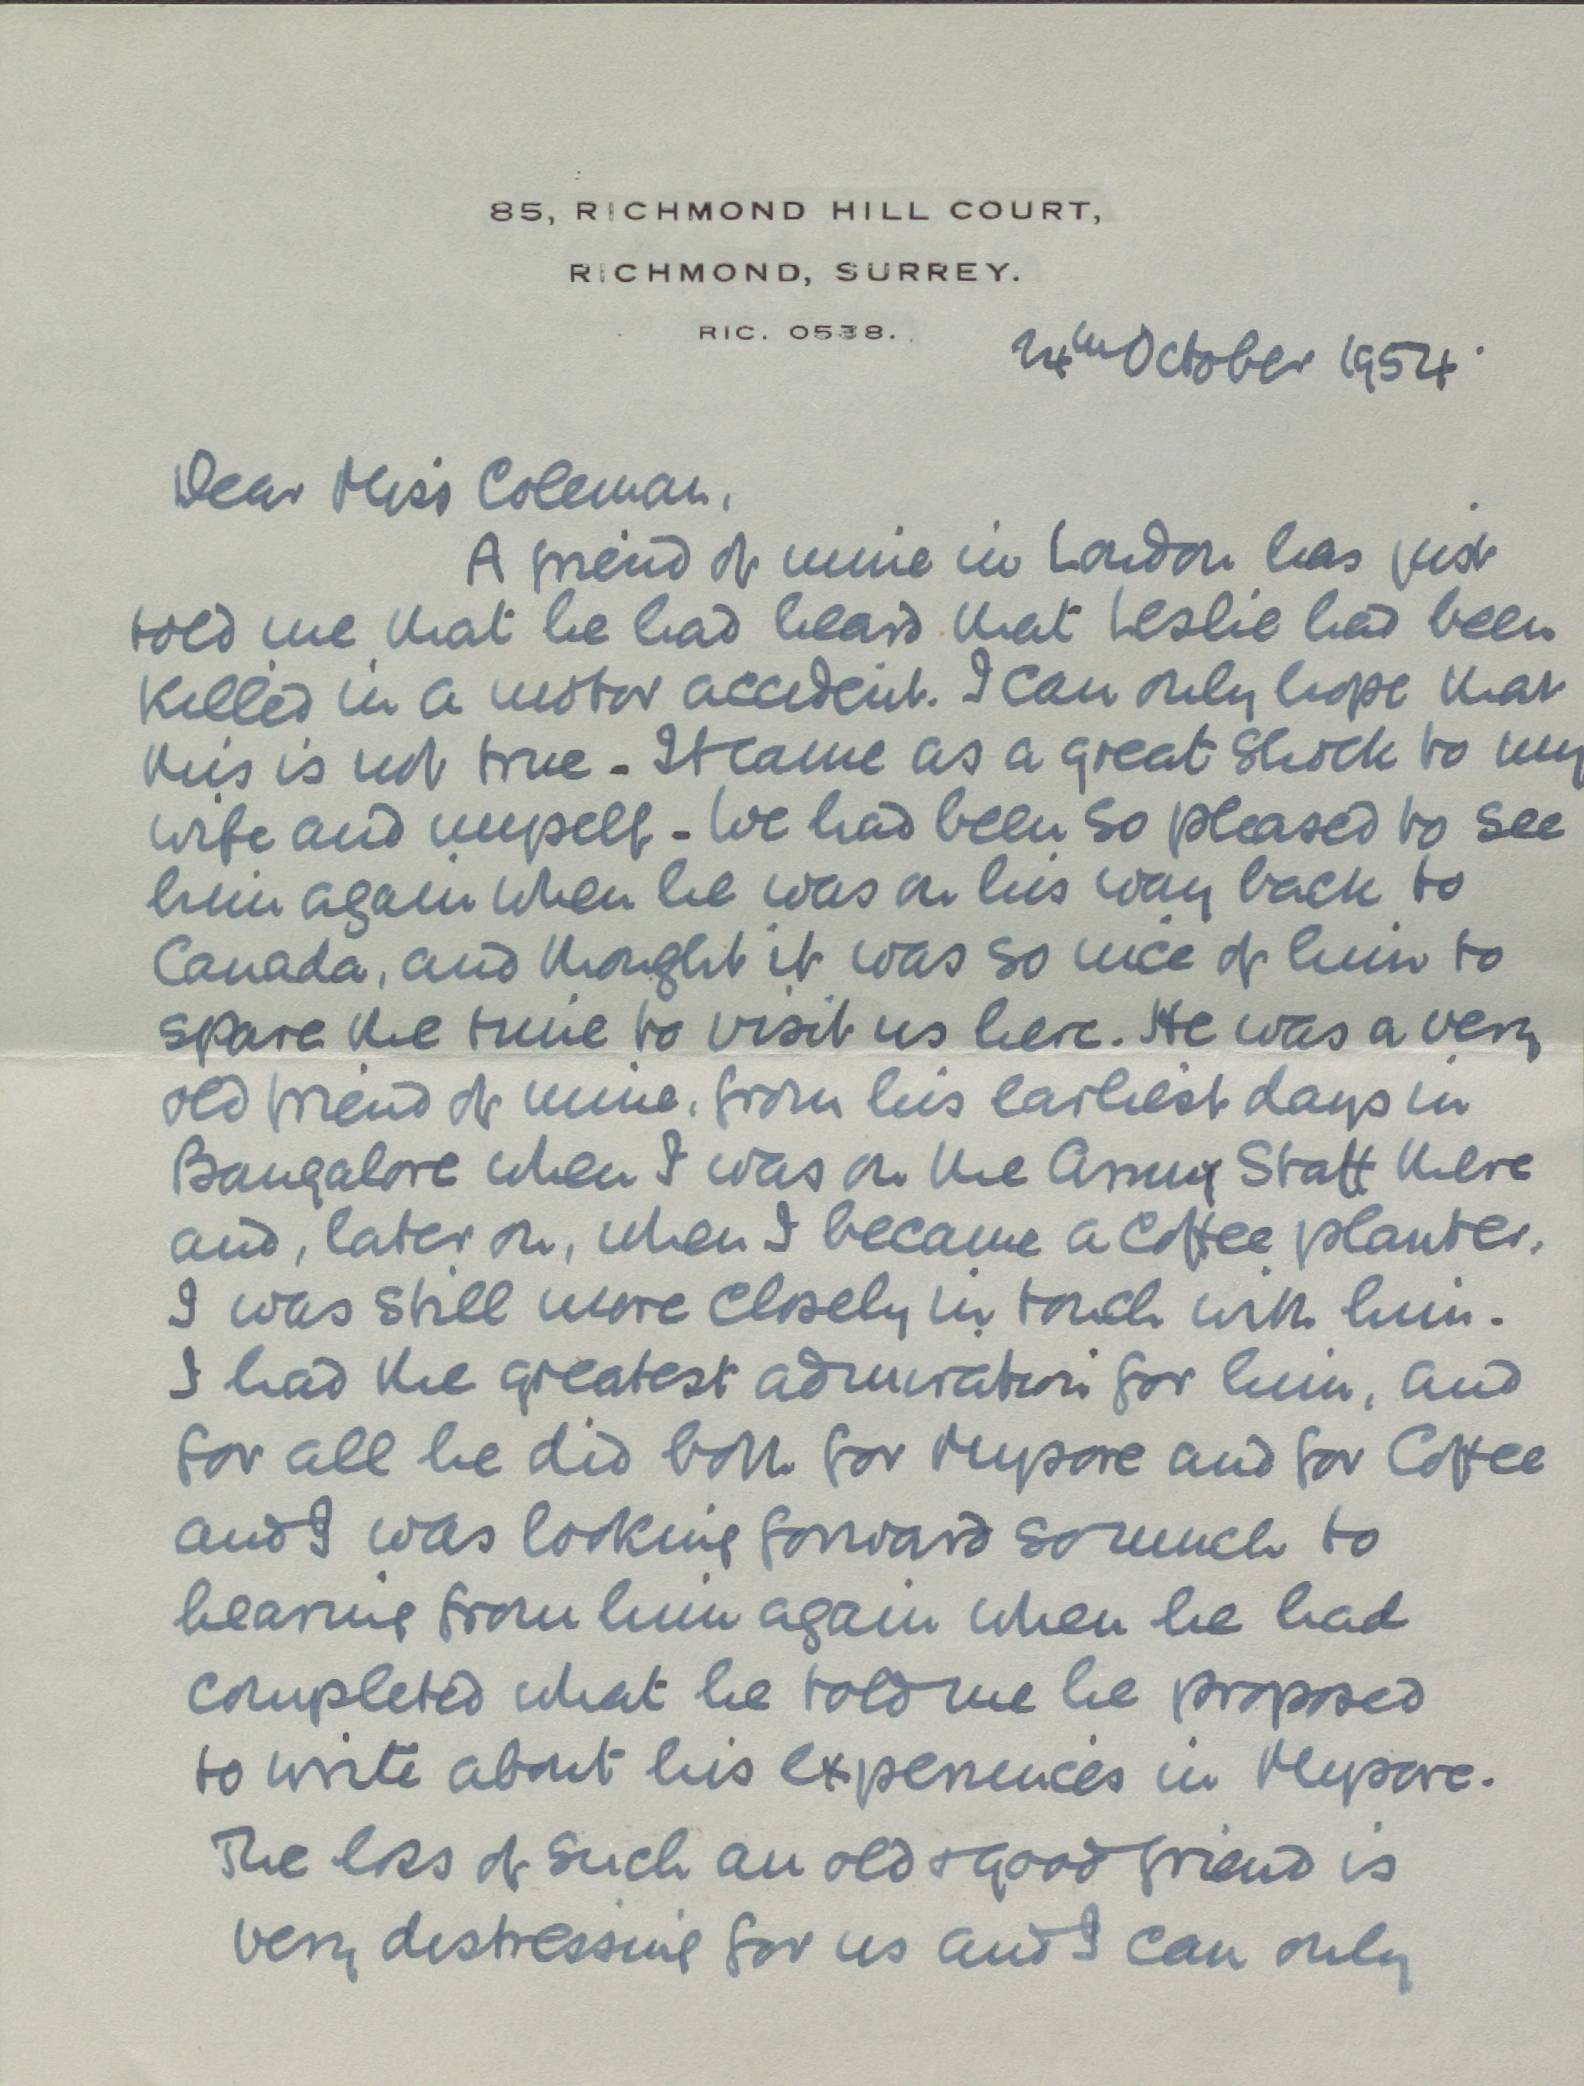 85, RICHMOND HILL COURT,
RICHMOND, SURREY.
RIC. 0538.
24th October 1954.
Dear Miss Coleman,
A friend of mine in London has just
told me that he had heard that Leslie had been
killed in a motor accident. I can only hope that
this is not true - It came as a great shock to my
wife and myself - We had been so pleased to see
him again when he was on his way back to
Canada, and thought it was so nice of him to
spare the time to visit us here. He was a very
old friend of mine, from his earliest days in
Bangalore when I was on the Army Staff there
and, later on, when I became a Coffee planter,
I was still more closely in touch with him.
I had the greatest admiration for him, and
for all he did both for Mysore and for Coffee
and I was looking forward so much to
hearing from him again when he had
completed what he told me he proposed
to write about his experiences in Mysore.
The loss of such an old & good friend is
very distressing for us and I can only